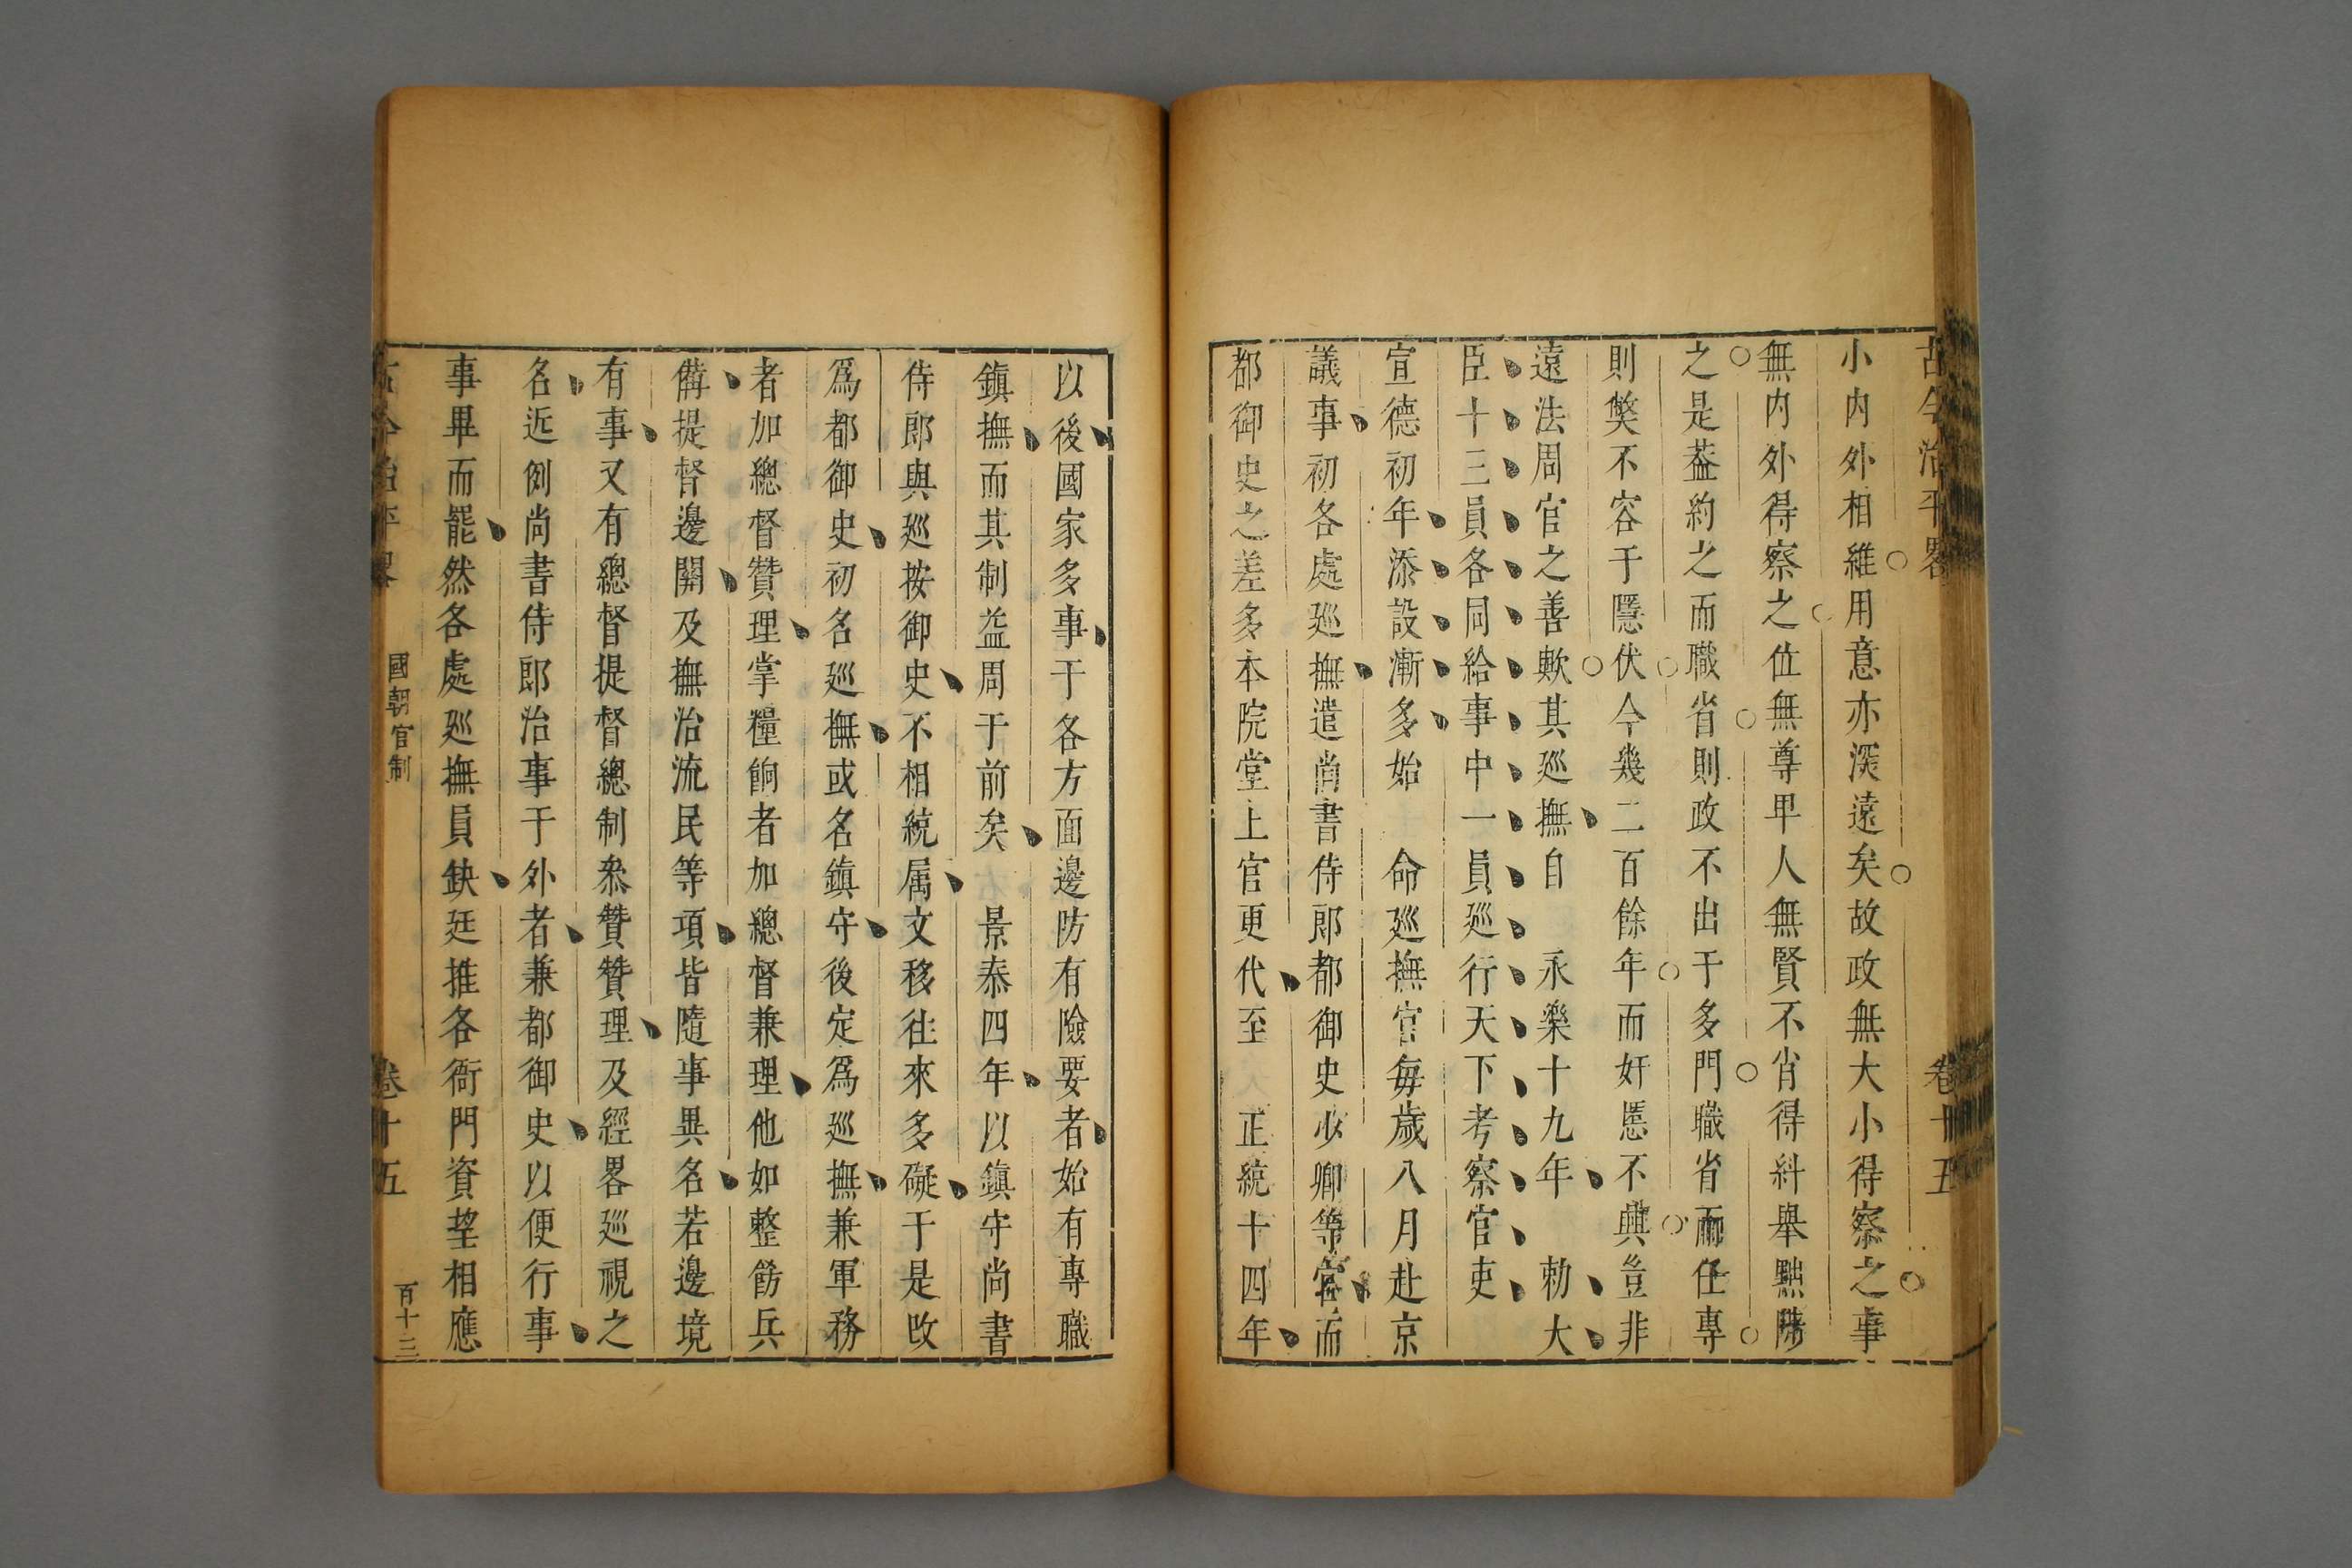 古今治平畧 卷十五
小内外相維用意亦深遠矣故政無大小得察之事
無内外得察之位無尊卑人無賢不肖得糾舉點陟
之是葢約之而職省則政不出于多門職省而任專
則獘不容于隱伏今幾二百餘年而奸慝不興豈非
遠法周官之善歟其廵撫自 永樂十九年 勅大
臣十三員各同給事中一員廵行天下考察官吏
宣德初年添設漸多始 命廵撫官每歲八月赴京
議事初各處廵撫遣尚書侍郎都御史少卿等官而
都御史之差多本院堂上官更代至 正統十四年
以後國家多事于各方面邊防有險要者始有專職
鎮撫而其制益周于前矣 景泰四年以鎮守尚書
侍郎與廵按御史不相統属文移徃來多礙于是改
爲都御史初名廵撫或名鎮守後定爲廵撫兼軍務
者加總督贊理掌糧餉者加總督兼理他如整飭兵
備提督邊關及撫治流民等項皆隨事異名若邊境
有事又有總督提督總制叅贊贊理及經畧廵視之
名近例尚書侍郎治事于外者兼都御史以便行事
事畢而罷然各處廵撫員缺廷推各衙門資望相應
古今治平畧 國朝官制 卷十五 百十三